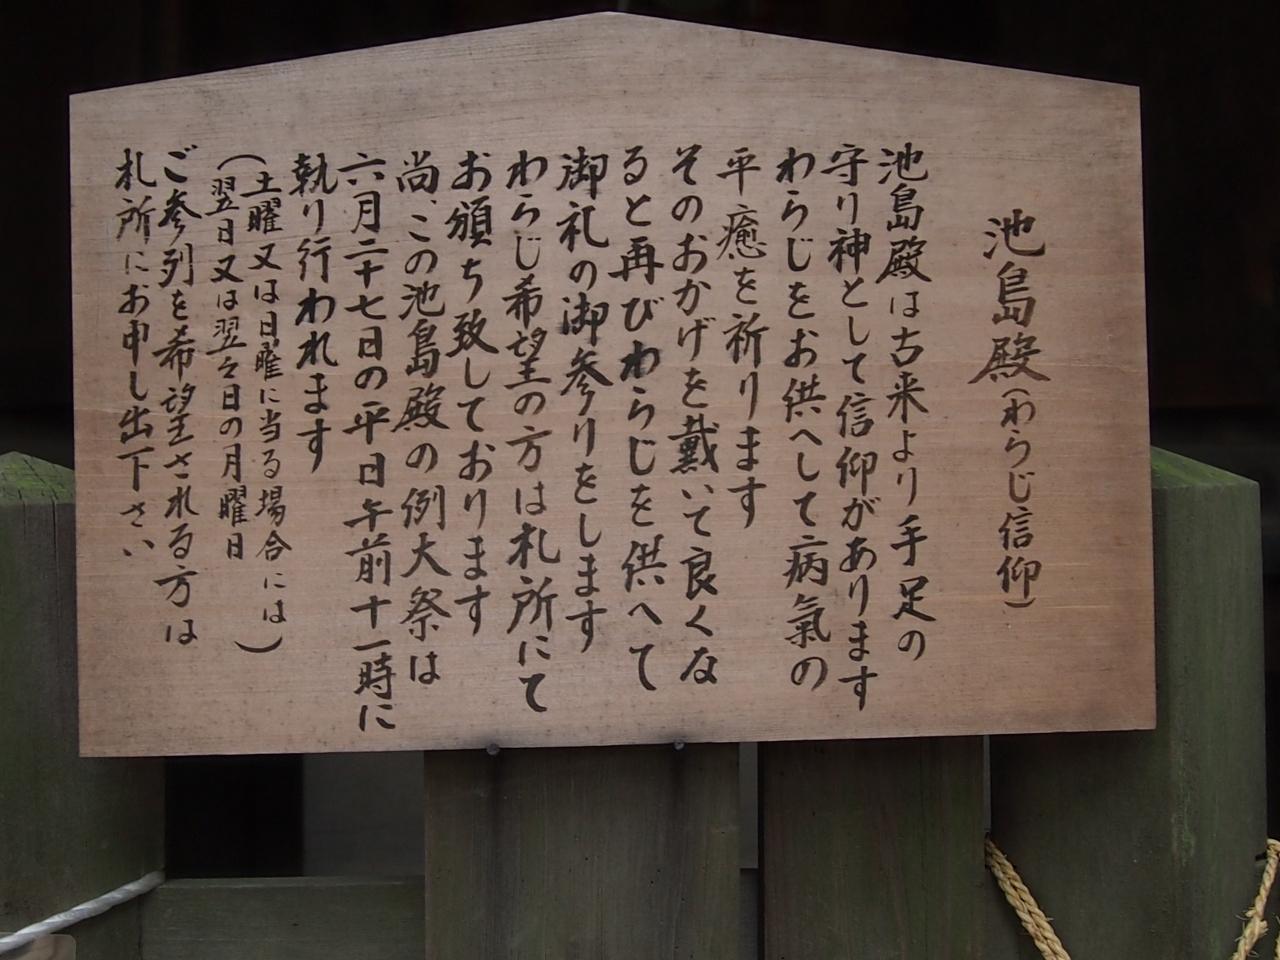 池島殿(わらじ信仰)
池島殿は古来より手足の
守り神として信仰があります
わらじをお供へして病氣の
平癒を祈ります
そのおかげを戴いて良くな
ると再びわらじを供へて
御礼の御参りをします
わらじ希望の方は札所にて
お頒ち致しております
尚、この池島殿の例大祭は
六月二十七日の平日午前十一時に
執り行われます
(土曜又は日曜に当る場合には
翌日又は翌々日の月曜日)
ご参列を希望される方は
札所にお申し出下さい